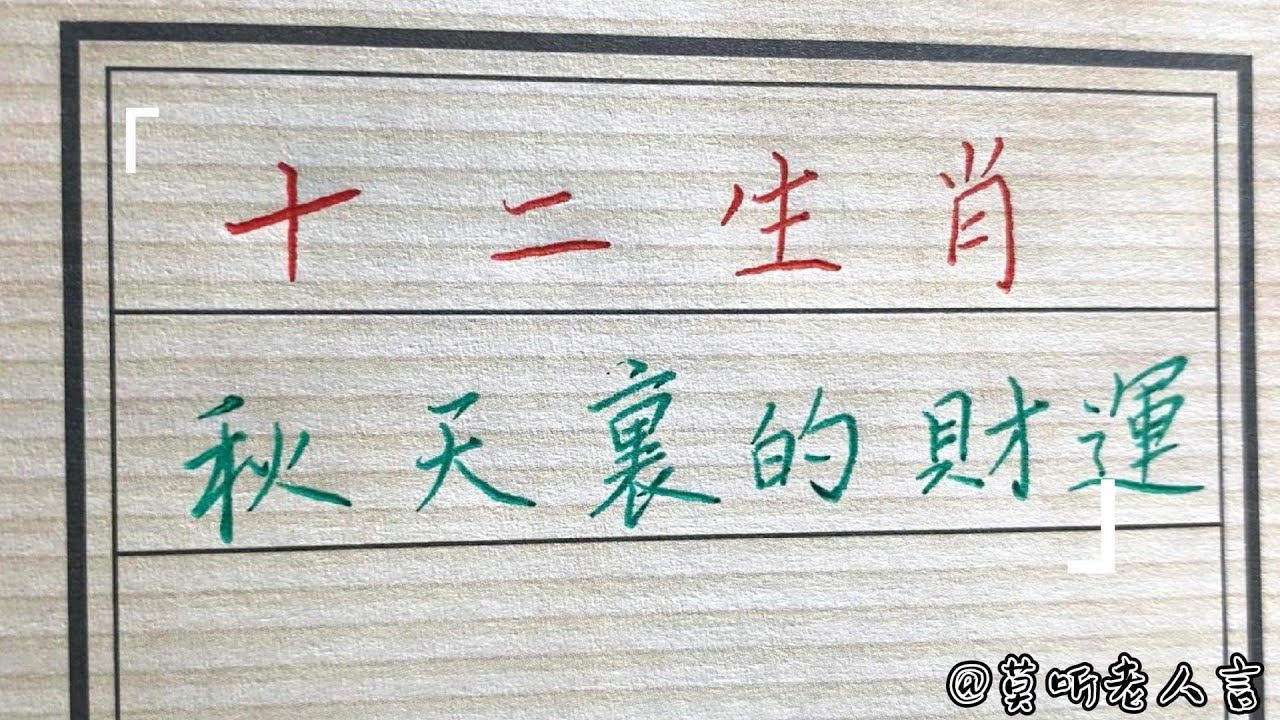 「十二生肖
秋天裏的財運」
@莫听老人言